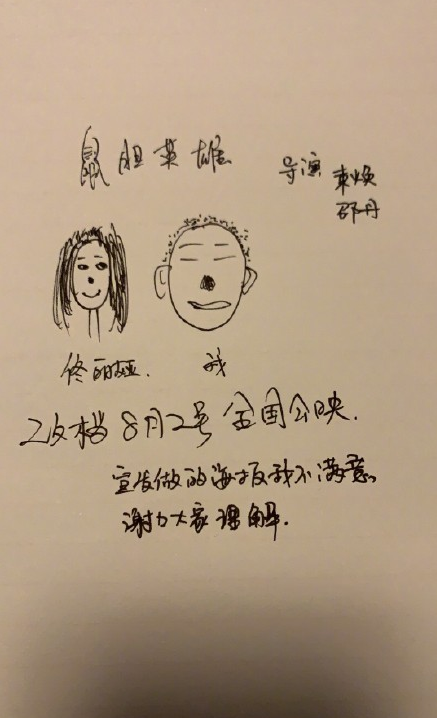 鼠胆英雄
导演 束焕
邵丹
佟丽娅. 我
改档8月2号全国公映.
宣发做的海报我不满意
谢谢大家理解.